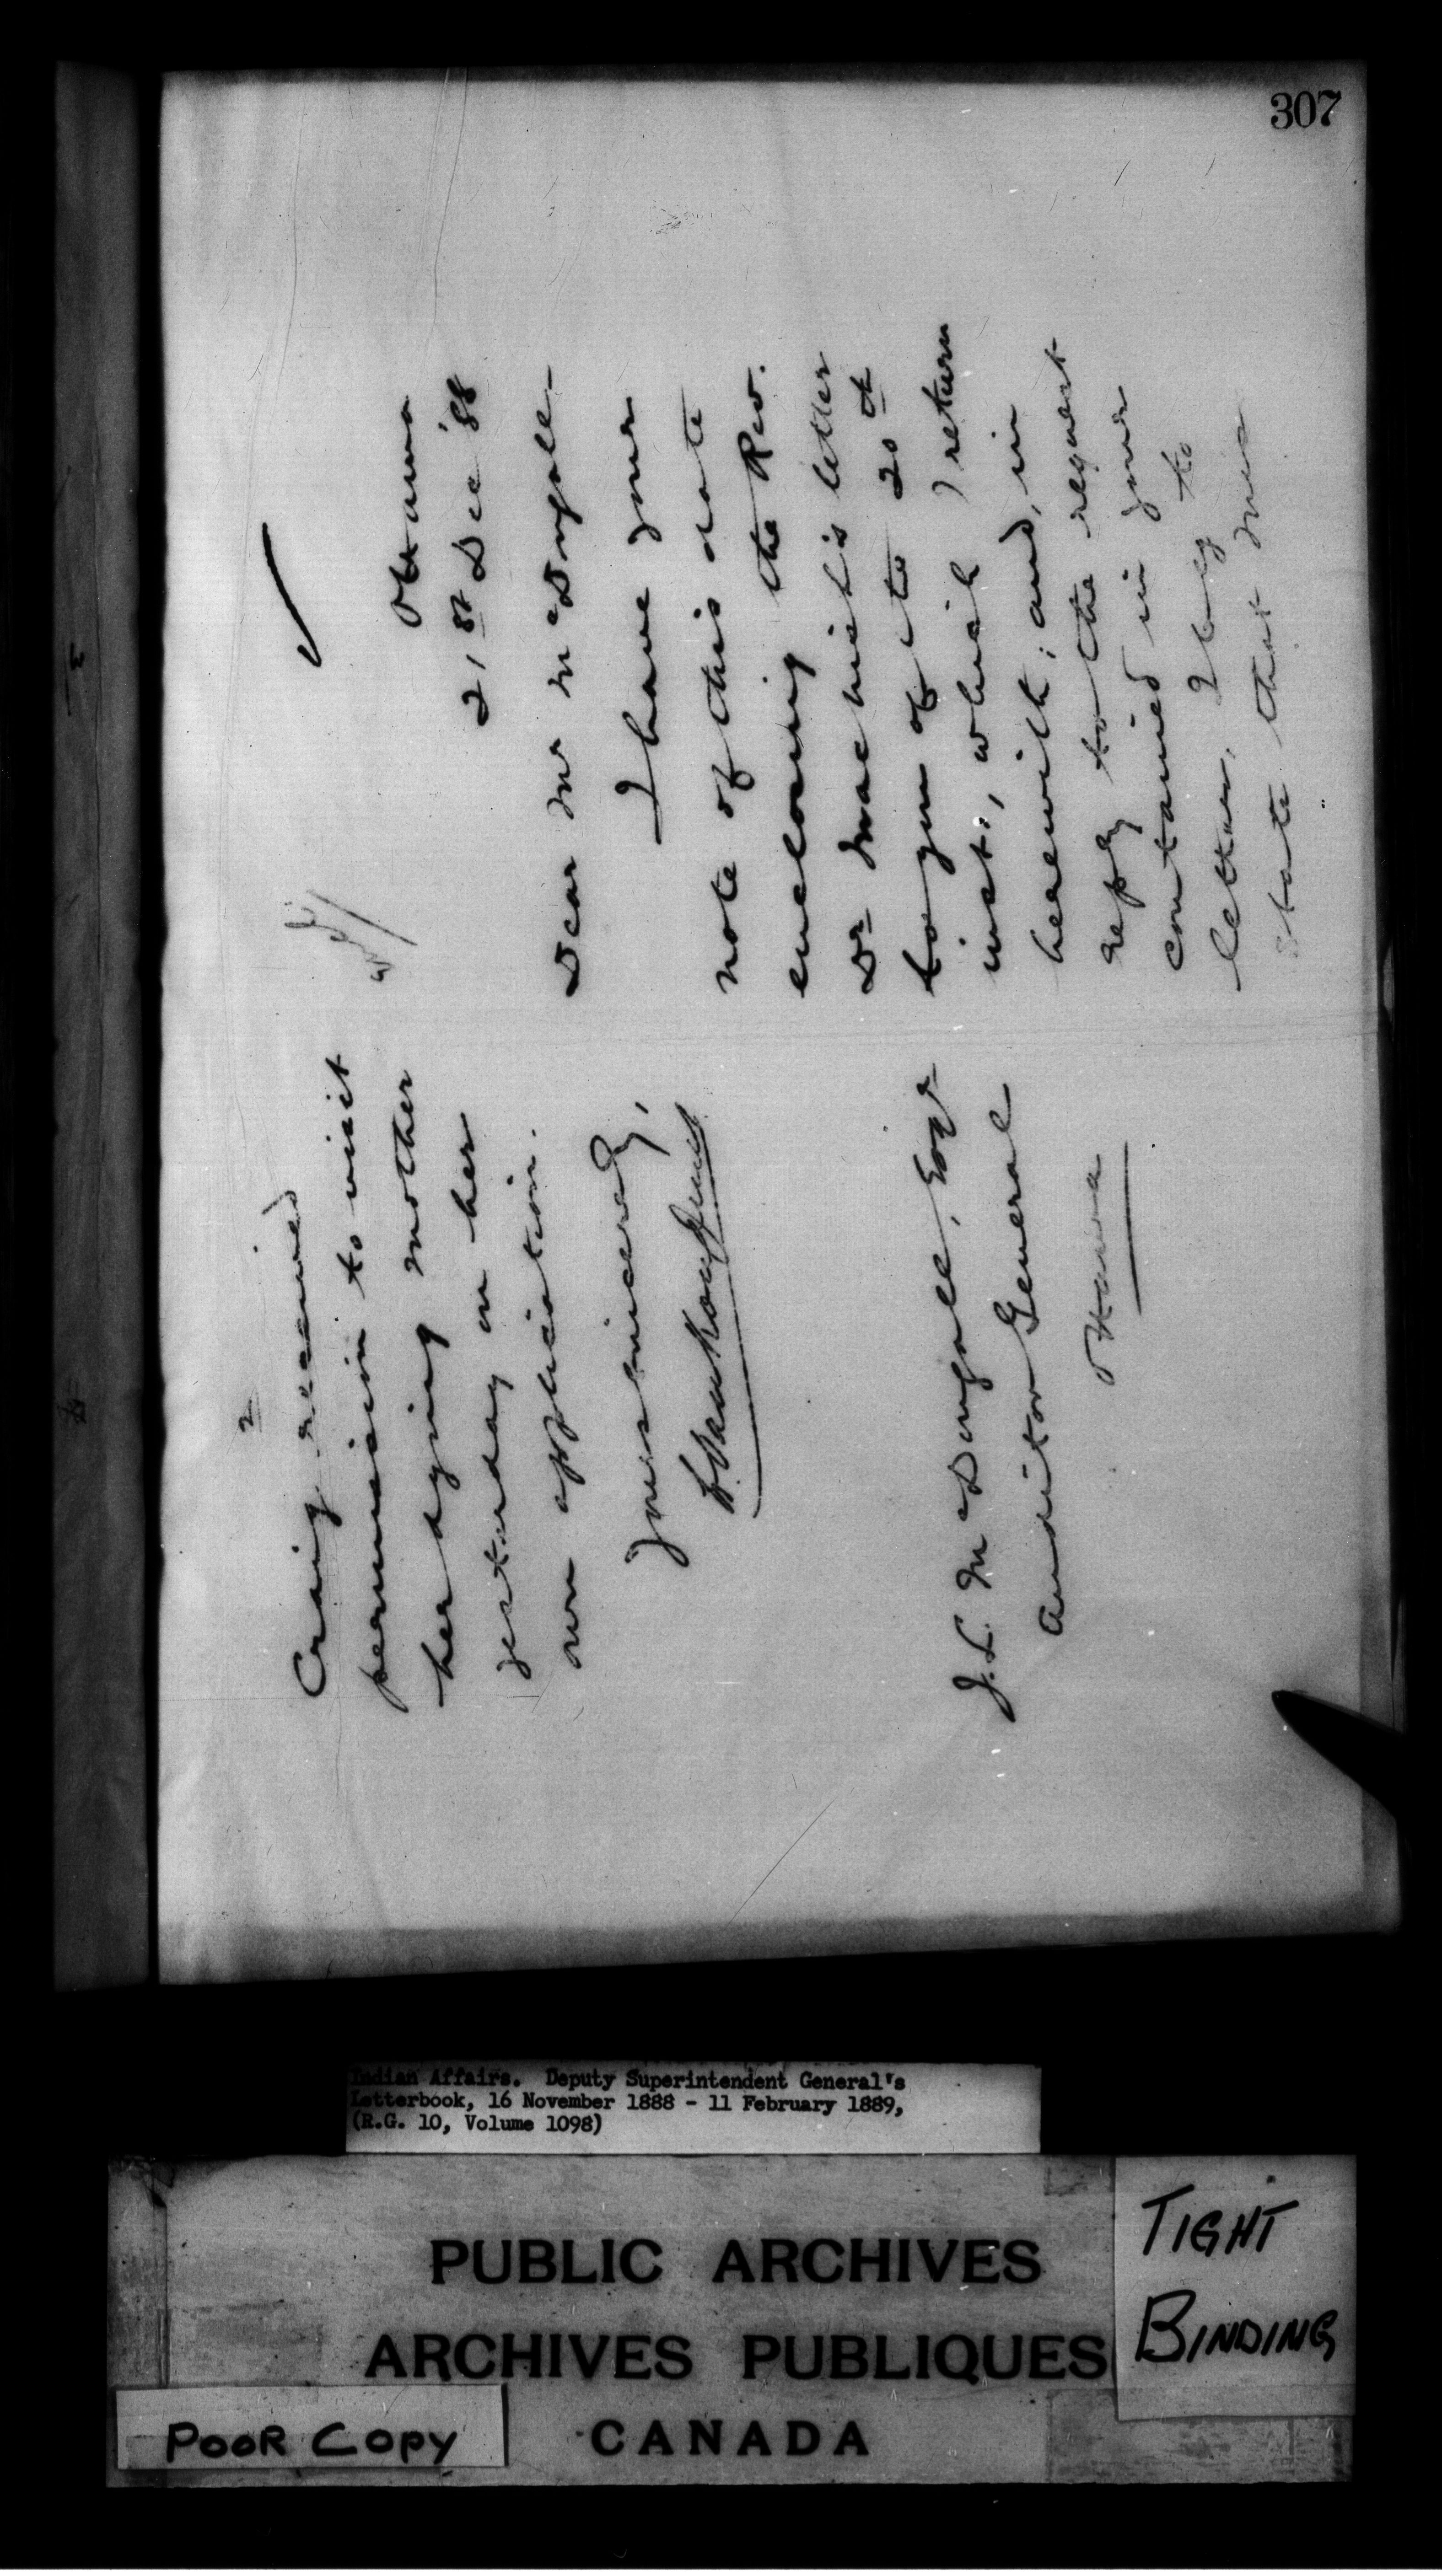 307
Ottawa
21st Dec '88
Dear Mr McDougall -
I have your
note of this date
enclosing the Rev.
Dr MacNish's letter
to you of the 20th
inst., which I return
herewith; and, in
reply to the request
contained in your
letter, I beg to
state that Miss
2
Craig received
permission to visit
her dying mother
yesterday on her
own application.
Yours sincerely,
L. VanKoughnet
J. L. McDougall, Esqr
Auditor General
Ottawa
Indian Affairs. Deputy Superintendent General's
Letterbook, 16 November 1888 - 11 February 1889,
(R.G. 10, Volume 1098)
PUBLIC ARCHIVES
ARCHIVES PUBLIQUES
CANADA
TIGHT
BINDING
POOR COPY